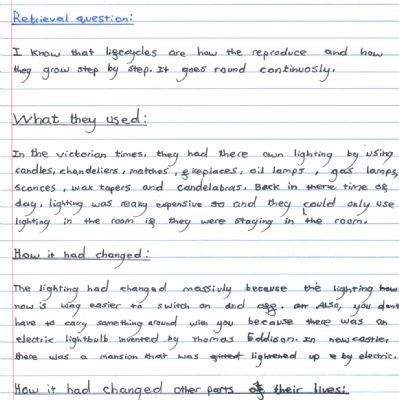 Retrieval question:
I know that lifecycles are how the reproduce and how
they grow step by step. It goes round continuosly.
What they used:
In the victorian times, they had there own lighting by using
candles, chandeliers, matches, fireplaces, oil lamps, gas lamps,
sconces, wax tapers and candelabras. Back in there time of
day, lighting was really expensive so and they could only use
lighting in the room if they were staying in the room.
How it had changed:
The lighting had changed massivly because the lighting how
now is way easier to switch on and off. Also, you dont
have to carry something around with you because there was an
electric lightbulb invented by Thomas Eddison. In newcastle,
there was a mansion that was lightened up by electric.
How it had changed other parts of their lives: